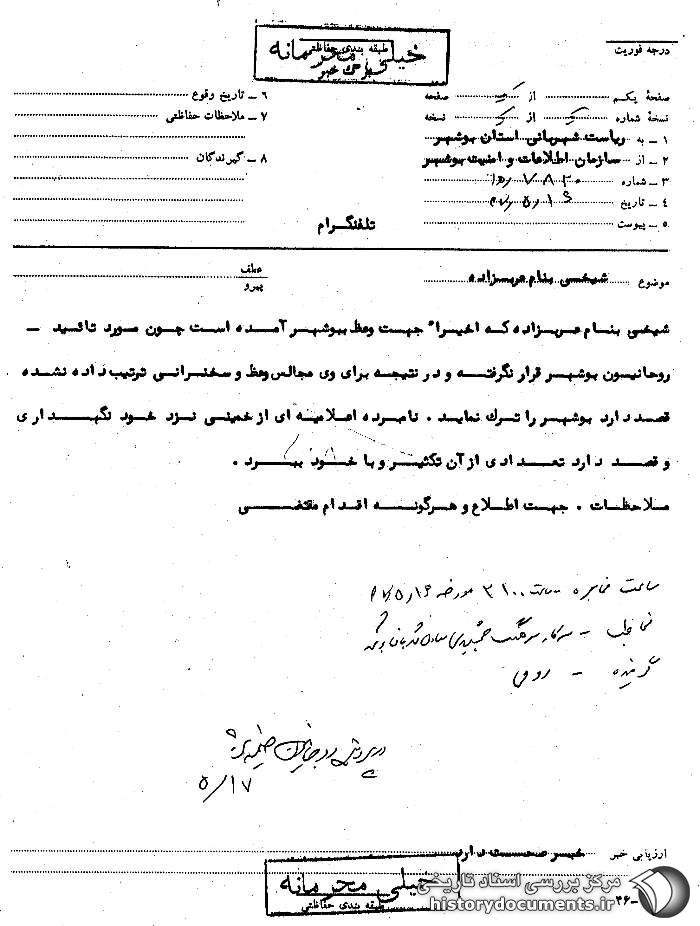 خیلی محرمانه
طبقه بندی حفاظتی
برگ خبر
درجه فوریت
صفحهٔ یکم از یک صفحه
نسخهٔ شماره از نسخه
۱ – به ریاست شهربانی استان بوشهر
۲ – از سازمان اطلاعات و امنیت بوشهر
۳ – شماره
۴ – تاریخ
۵ – پیوست
۶ – تاریخ وقوع
۷ – ملاحظات حفاظتی
۸ – گیرندگان
تلفنگرام
موضوع شیخی بنام عربزاده
عطف
پیرو
شیخی بنام عربزاده که اخیرا" جهت وعظ ببوشهر آمده است چون مورد تائید –
روحانیون بوشهر قرار نگرفته و در نتیجه برای وی مجالس وعظ و سخنرانی ترتیب داده نشده
قصد دارد بوشهر را ترک نماید . نامبرده اعلامیه ای از خمینی نزد خود نگهداری
و قصد دارد تعدادی از آن تکثیر و با خود ببرد .
ملاحظات . جهت اطلاع و هرگونه اقدام مقتضی
ساعت مخابره ساعت ۲۱۰۰ مورخه
گوینده –
۵/۱۷
ارزیابی خبر خبر صحت دارد
خیلی محرمانه
طبقه بندی حفاظتی
مرکز بررسی اسناد تاریخی
historydocuments.ir
۳۶–